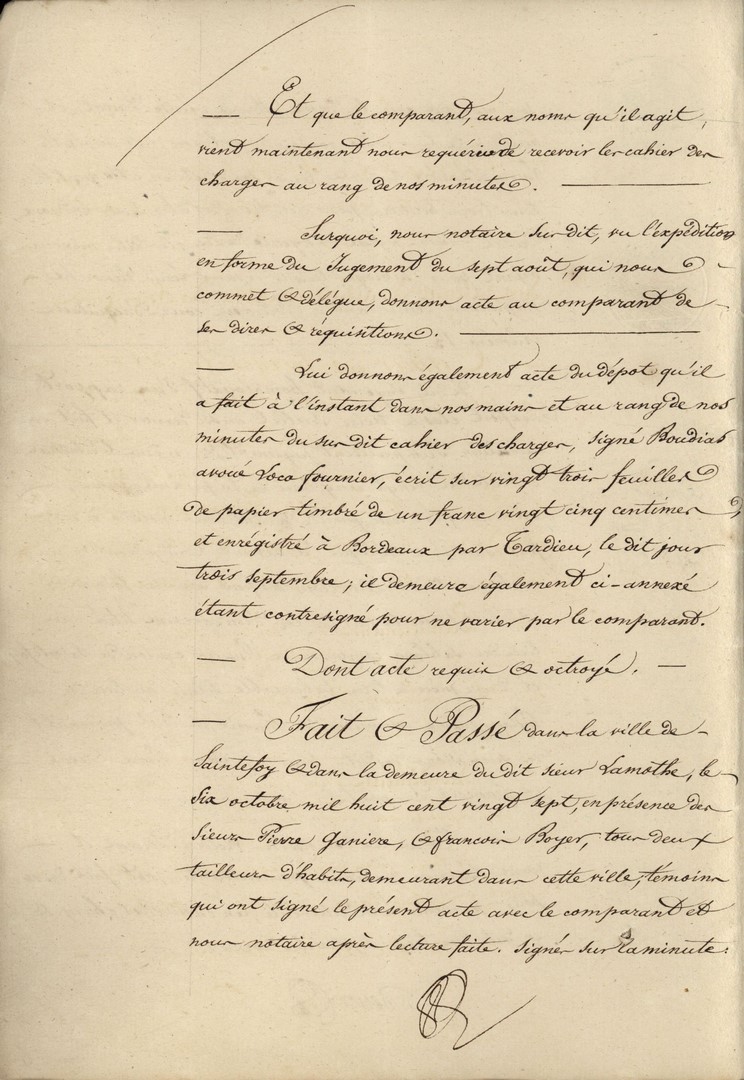 — Et que le comparant, aux noms qu'il agit,
vient maintenant nous requérir de recevoir les cahier des
charges au rang de nos minutes. —
— Surquoi, nous notaire sur dit, vu l'expédition
en forme du Jugement du sept août, qui nous
commet & délégue, donnons acte au comparant de
ses dires & réquisitions. —
— Lui donnons également acte du dépot qu'il
a fait à l'instant dans nos mains et au rang de nos
minutes du sus dit cahier des charges, signé Boudias
avoué Loco fournier, écrit sur vingt trois feuilles
de papier timbré de un franc vingt cinq centimes,
et enrégistré à Bordeaux par Tardieu, le dit jour
trois septembre; il demeure également ci-annexé
étant contresigné pour ne varier par le comparant.
— Dont acte requis & octroyé. —
— Fait & Passé dans la ville de
Saintefoy & dans la demeure du dit sieur Lamothe, le
Six octobre mil huit cent vingt sept, en présence des
sieurs Pierre Ganiere, & françois Boyer, tous deux
tailleurs d'habits, demeurant dans cette ville, témoins
qui ont signé le présent acte avec le comparant et
nous notaire après lecture faite. Signés sur la minute: